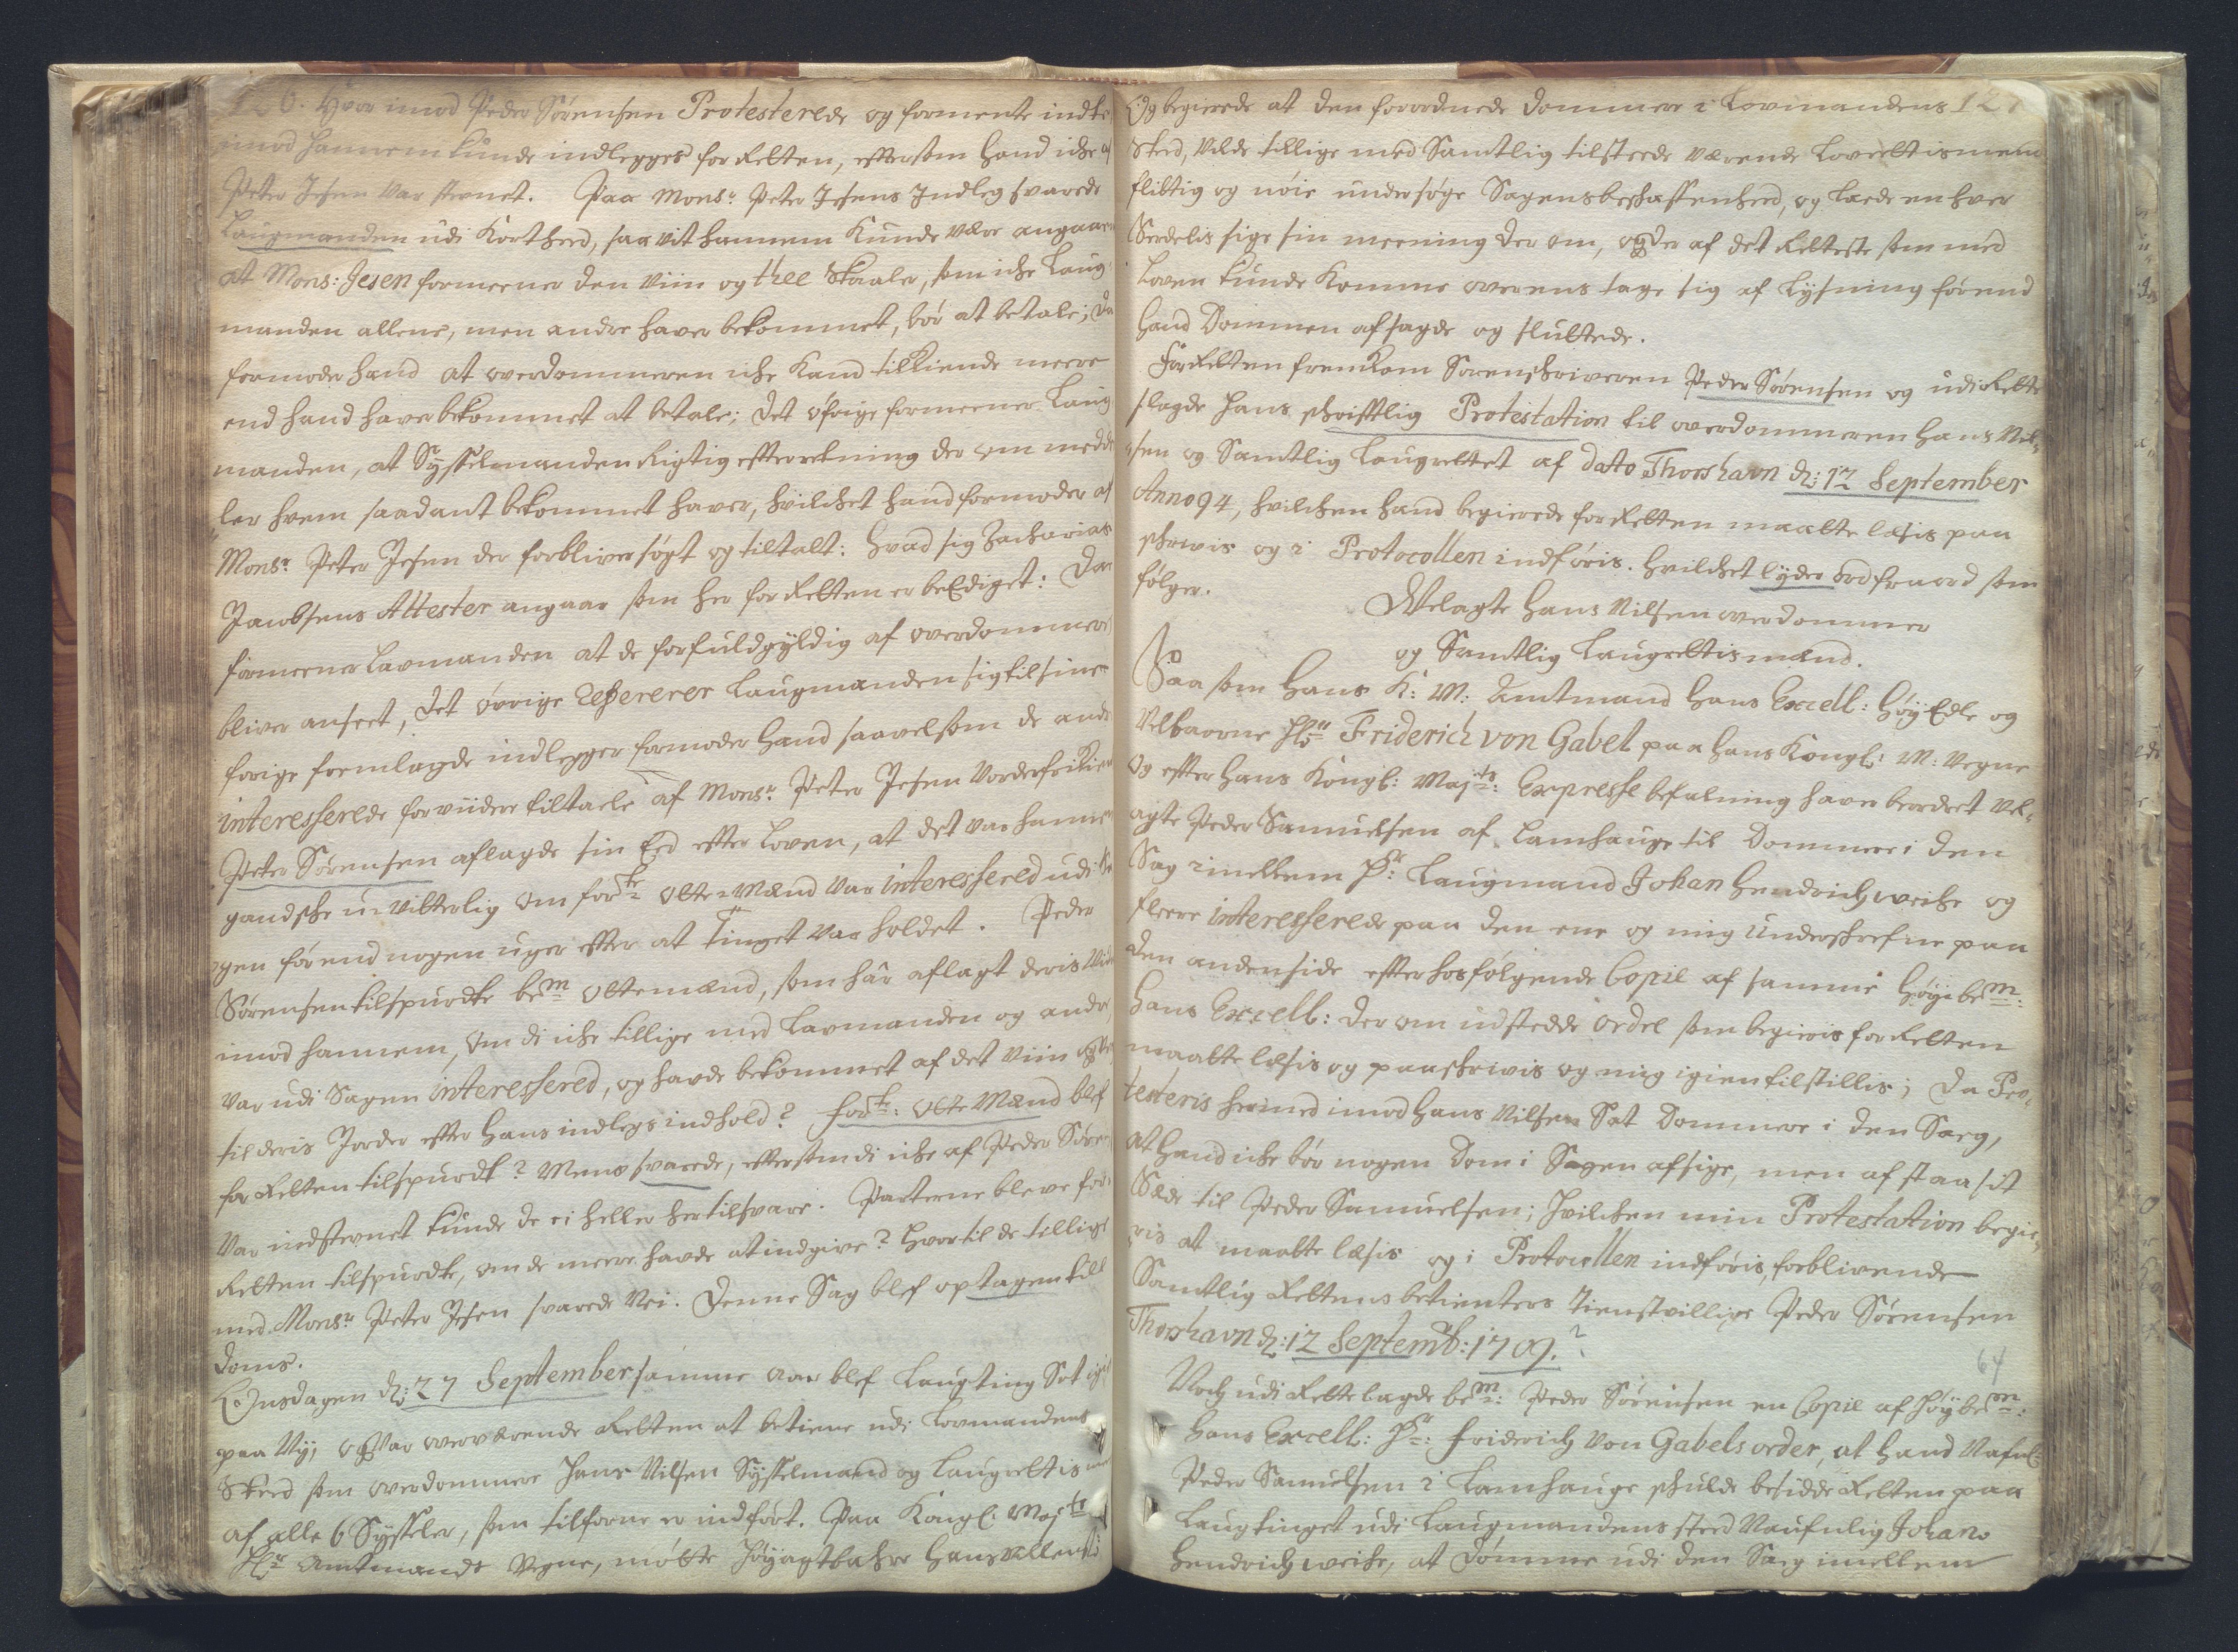 120. Hvor imod Peder Sørensen Protesterede og formente indte
imod hannem kunde indlegges for Retten, eftersom hand iche af
Peter Jesen var stevnet. Paa Mons:r Peter Jesens Indleg svarede
Laugmanden udi Kortheed, saa vit hannem Kunde være angaaen
at Mons: Jesen formeener den Viin og thee Skaaler, som iche Laug-
manden allene, men andre haver bekommet, bør at betale; Da
formoder hand at overdommeren iche Kand tilkiende meere
end hand haver bekommet at betale; det øfrige formeener Laug
manden, at Sysselmanden Rigtig efterretning der om medde
ler hvem saadant bekommet haver, hvilchet hand formoder af
Mons:r Peter Jesen der forbliver søgt og tiltalt: hvad sig Zacharias
Jacobsens Attester angaar som her for Retten er beEdiget: Da
formeener Lavmanden at de for fuldgyldig af overdommeren
bliver anseet, det øvrige Refererer Laugmanden sig til sine
forige fremlagde indlegger formoder hand saavelsom de andre
interesserede for viidere tiltaele af Mons:r Peter Jesen Vorder frikien
Peter Sørensen aflagde sin Eed efter Loven, at det var hannem
gandsche u-vitterlig om for:te Otte-Mænd var interessered udi Sa
gen førend nogen uger efter at Tinget var holdet. Peder
Sørensen tilspurdte be:m Ottemænd, som hâr aflagt deris Vidne
imod hannem, om di iche tillige med Lavmanden og andre,
var udi Sagen interessered, og hafde bekommet af det Viin og
til deris Jorder efter hans indlegs indhold? for:te: Otte Mænd blef
for Retten tilspurdt? Mens svarede, eftersom di iche af Peder Søren
Var indstevnet kunde de ei heller her til svare. Parterne bleve for
Retten tilspurdte, om de meere hafde at indgive? Hvor til de tillige
med Mons:r Peter Jesen svarede Nei. Denne Sag blef optagen till
Doms.
Onsdagen d: 27 September samme Aar blef Laugting Sat igi
paa Ny, og Var overværende Retten at betiene udi Lovmandens
Steed som overdommere Hans Nilsen Sysselmand og Laugrettismen
af alle 6 Sysseler, som tilforne er indført. Paa Kongl: Maj:ts
Hr: Amtmands Vegne, møtte Høyagtbahre Hans
Og begierede at den forordnede Dommere i Lovmandens 121
Sted, vilde tillige med Samtlig tilsteede værende Lovrettismænd
flittig og nøie undersøge Sagens beschaffenheed, og laede en hver
Serdelis sige sin meening der om, og der af det Retteste som med
Loven kunde komme overens tage sig af Lysning førend
hand Dommen afsagde og sluttede.
For Retten fremkom Sorenschriveren Peder Sørensen og udi Rette
lagde Hans schriftlig Protestation til overdommeren Hans Nil-
sen og Samtlig Laugrettet af Datto Thorshavn d: 12 September
Anno 94, hvilchen hand begierede for Retten maatte læsis paa
schrivis og i Protocollen indføris. hvilchet lyder ord fra ord som
følger.
Welagte Hans Nilsen overdommer
og Samtlig Laugrettismænd.
Saa som Hans K: M: Amtmand Hans Excell: HøyEdle og
Velbaarne Hr: Friderich von Gabel paa Hans Kongl: M: Vegne
og efter Hans Kongl: Maj:ts: Expresse befalning haver beordret Vel-
agte Peder Samuelsen af Lamhauge til Dommere i den
Sag imellem Hr: Laugmand Johan Hendrich weihe og
fleere interesserede paa den ene og mig Underschrefne paa
den anden side efter hosfølgende Copie af samme Høyibem:
Hans Excell: der om udstedde ordel som begieris for Retten
maatte læsis og paaschrivis og mig igien tilstillis; Da Pro-
testeris hermed imod Hans Nilsen Sat Dommere i den Saeg,
at hand iche bør nogen Dom i Sagen afsige, men afstaa sit
Sæde til Peder Samuelsen; Hvilchen min Protestation begie-
ris at maatte læsis og i Protocollen indføris, forblivende
Samtlig Rettens betienters tienstvillige Peder Sørensen
Thorshavn d: 12 Septemb: 1709.
64
Noch udi Rette lagde bem: Peder Sørensen en Copie af Høybem:
Hans Excell: Hr: friderich von Gabels order, at hand Nafnl:
Peder Samuelsen i Lamhauge schulde besidde Retten paa
Laugtinget udi Laugmandens sted Naufnlig Johan
Hendrich weihe, at dømme udi den Saeg imellem